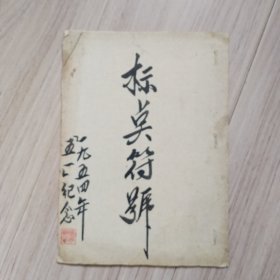 标点符號
一九五四年
五一纪念